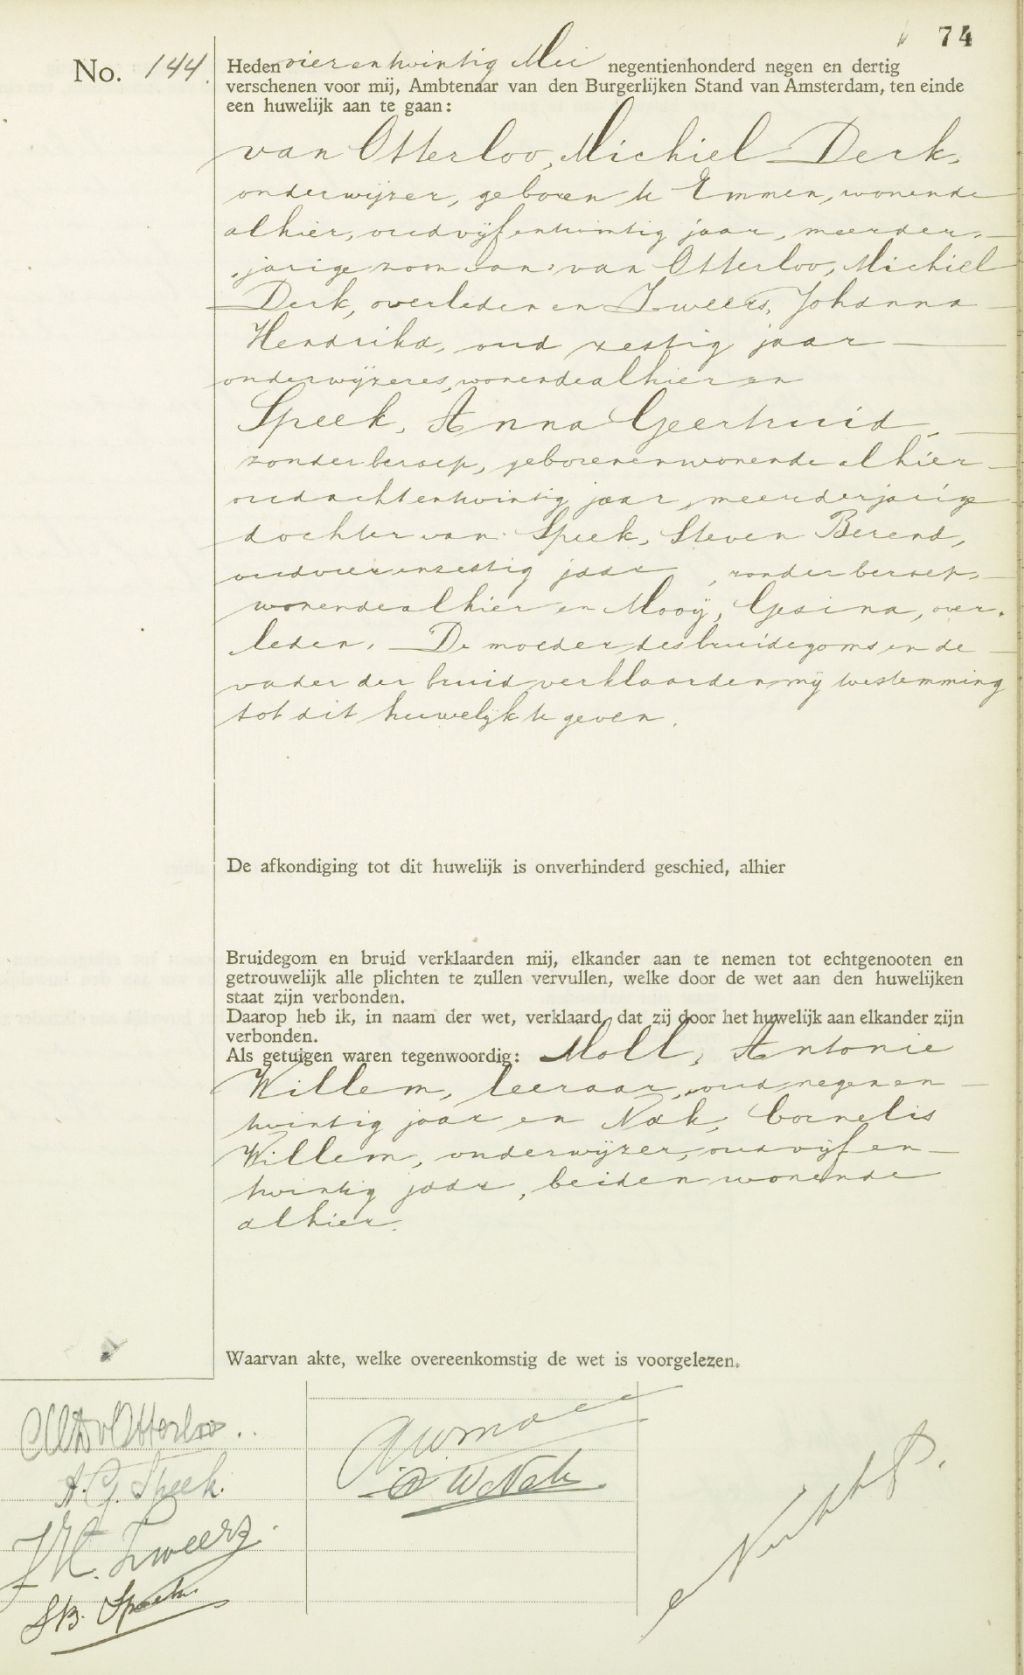 74
No. 144.
Heden vier en twintig Mei negentienhonderd negen en dertig
verschenen voor mij, Ambtenaar van den Burgerlijken Stand van Amsterdam, ten einde
een huwelijk aan te gaan:
van Otterloo, Michiel Derk,
onderwijzer, geboren te Emmen, wonende
alhier, oud vijf en twintig jaar, meerder-
jarige zoon van: van Otterloo, Michiel
Derk, overleden en Zweers, Johanna
Hendrika, oud zestig jaar
onderwijzeres, wonende alhier en
Speek, Anna Geertruid,
zonder beroep, geboren en wonende alhier
oud acht en twintig jaar, meerderjarige
dochter van: Speek, Steven Berend,
oud vier en zestig jaar, zonder beroep,
wonende alhier en Mooÿ, Gesina, over-
leden. De moeder des bruidegoms en de
vader der bruid verklaarden mij toestemming
tot dit huwelijk te geven.
De afkondiging tot dit huwelijk is onverhinderd geschied, alhier
Bruidegom en bruid verklaarden mij, elkander aan te nemen tot echtgenooten en
getrouwelijk alle plichten te zullen vervullen, welke door de wet aan den huwelijken
staat zijn verbonden.
Daarop heb ik, in naam der wet, verklaard, dat zij door het huwelijk aan elkander zijn
verbonden.
Als getuigen waren tegenwoordig: Moll, Antonie
Willem, leeraar, oud negen en
twintig jaar en Nak, Cornelis
Willem, onderwijzer, oud vijf en
twintig jaar, beiden wonende
alhier.
Waarvan akte, welke overeenkomstig de wet is voorgelezen.
MD v Otterloo.
A. G. Speek.
J H. Zweers.
S B. Speek.
AWMoll
C. W. Nak